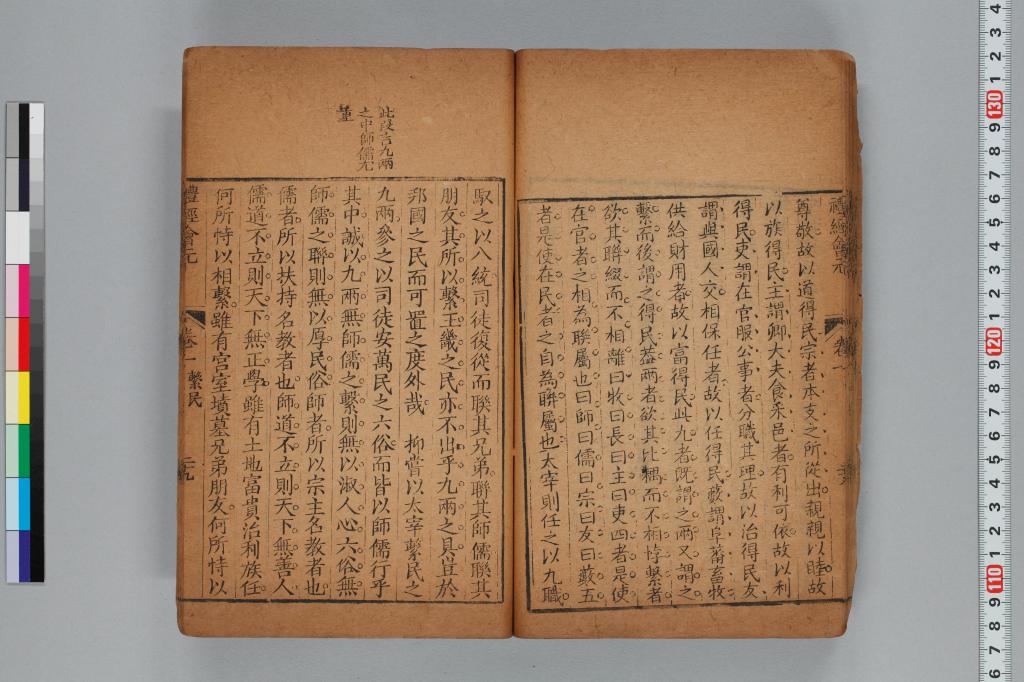 禮經會元
卷一
尊敬故以道得民宗者本支之所從出親親以睦故
以族得民主謂卿大夫食采邑者有利可依故以利
得民吏謂在官服公事者分職其理故以治得民友
謂與國人交相保任者故以任得民藪謂阜蕃畜牧
供給財用者故以富得民此九者旣謂之兩又謂之
繫而後謂之得民葢兩者欲其比耦而不相悖繫者
欲其聨綴而不相離曰牧曰長曰主曰吏四者是使
在官者之相為聨屬也曰師曰儒曰宗曰友曰藪五
者是使在民者之自為聨屬也太宰則任之以九職
此段言九兩
之中師儒尤
重
馭之以八統司徒復從而聯其兄弟聯其師儒聯其
朋友其所以繫王畿之民亦不出乎九兩之具豈於
邦國之民而可置之度外哉 抑嘗以太宰繫民之
九兩參之以司徒安萬民之六俗而皆以師儒行乎
其中誠以九兩無師儒之繫則無以淑人心六俗無
師儒之聯則無以厚民俗師者所以宗主名教者也
儒者所以扶持名教者也師道不立則天下無善人
儒道不立則天下無正學雖有土地富貴治利族任
何所恃以相繫雖有宮室墳墓兄弟朋友何所恃以
禮經會元
卷一 繫民
二九